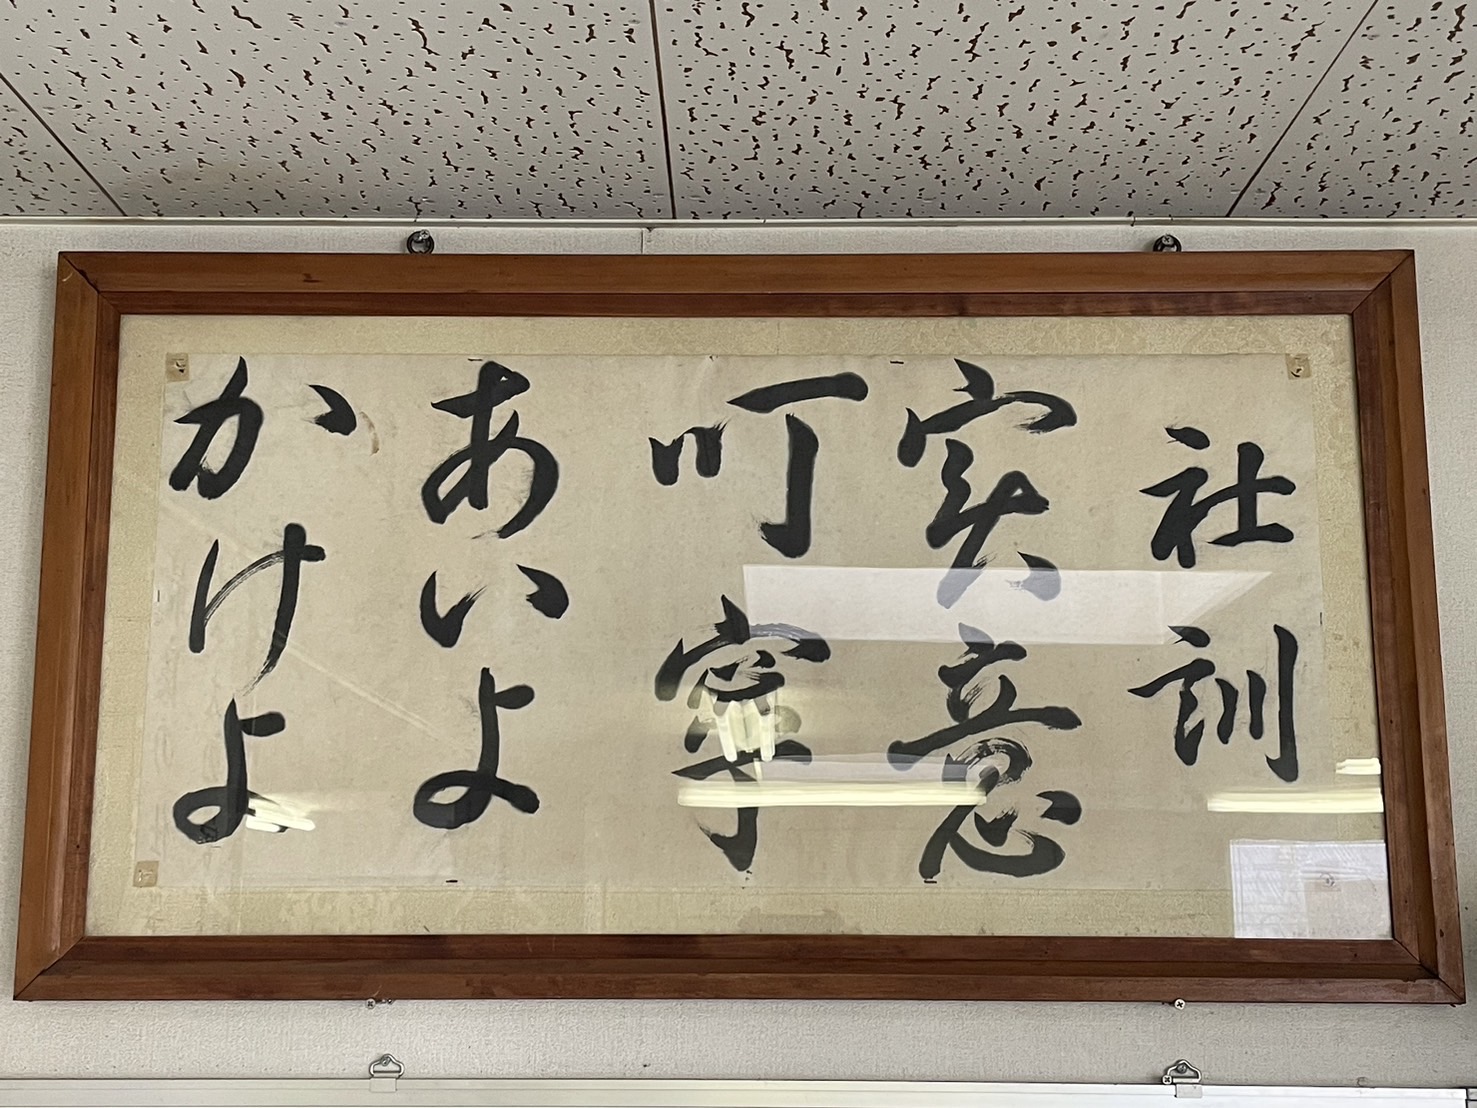 社訓
実意
叮寧
あいよ
かけよ